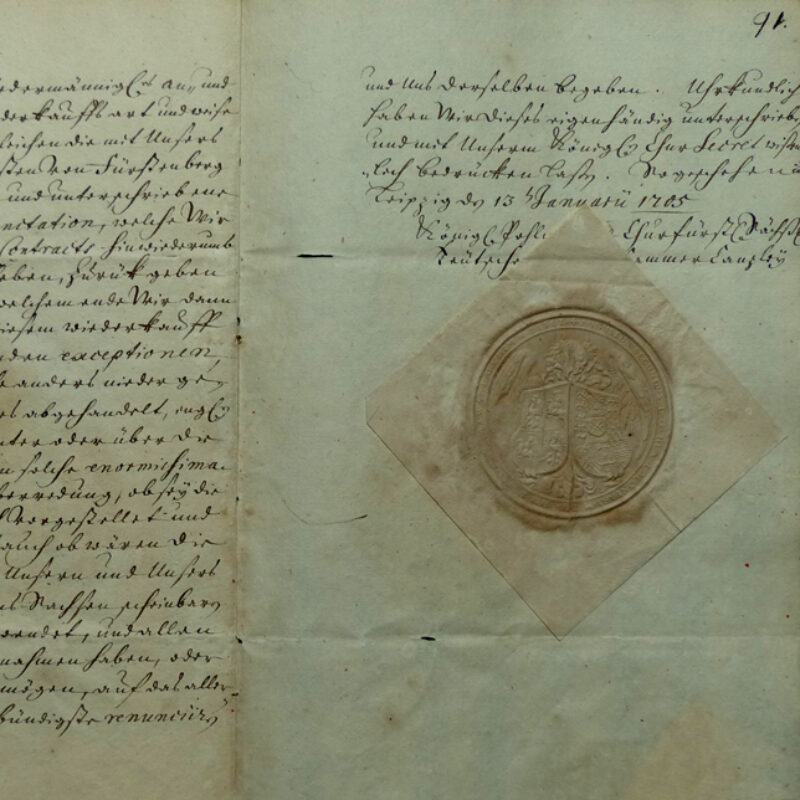 91.
jedermännigl. an, und
derkauffs art und weise
leichen die mit Unsers
sten von Fürstenberg
und unterschriebene
nctation, welche Wir
Contracts hinwiederumb
eben, zurück geben
welchem ende Wir dann
diesem wiederkauff
nden exceptionen,
anders nieder ge-
es abgehandelt,
nter oder über die
n solche enormissima
berredung, ob sey die
vorgestellet und
auch ob wären die
Unsern und Unsers
Sachsen scheinbar
wendet, und allen
nahmen haben, oder
mögen, auf das aller-
bündigste renunciir
und Uns derselben begeben. Uhrkundlich
haben Wir dieses eigenhändig unterschrieben
und mit Unserm Königl. Chur Secret wissent-
lich bedrucken lassen. So geschehen
Leipzig den 13t Januarii 1705
Königl. Pohln. Churfürstl. Sächß.
Teutsche Cammer Canzley